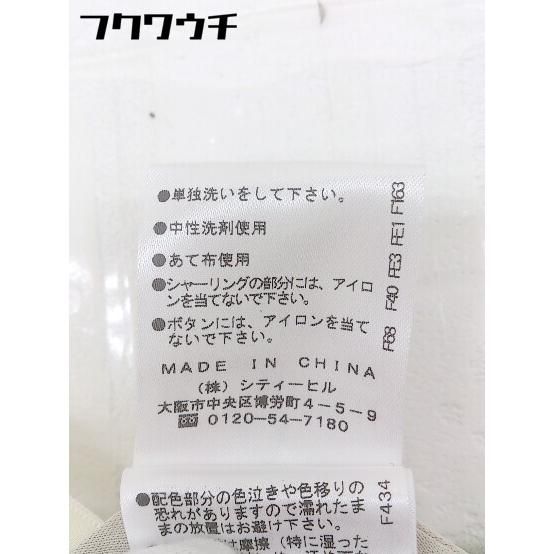 フクワウチ
●単独洗いをして下さい。
●中性洗剤使用
●あて布使用
●シャーリングの部分には、アイロ
ンを当てないで下さい。
●ボタンには、アイロンを当て
ないで下さい。
MADE IN CHINA
(株) シティーヒル
大阪市中央区博労町4-5-9
0120-54-7180
F68 F40 FE3 FE1 F163
●配色部分の色泣きや色移りの
恐れがありますので濡れたま
まの放置はお避け下さい。
は摩擦(特に湿った
F434